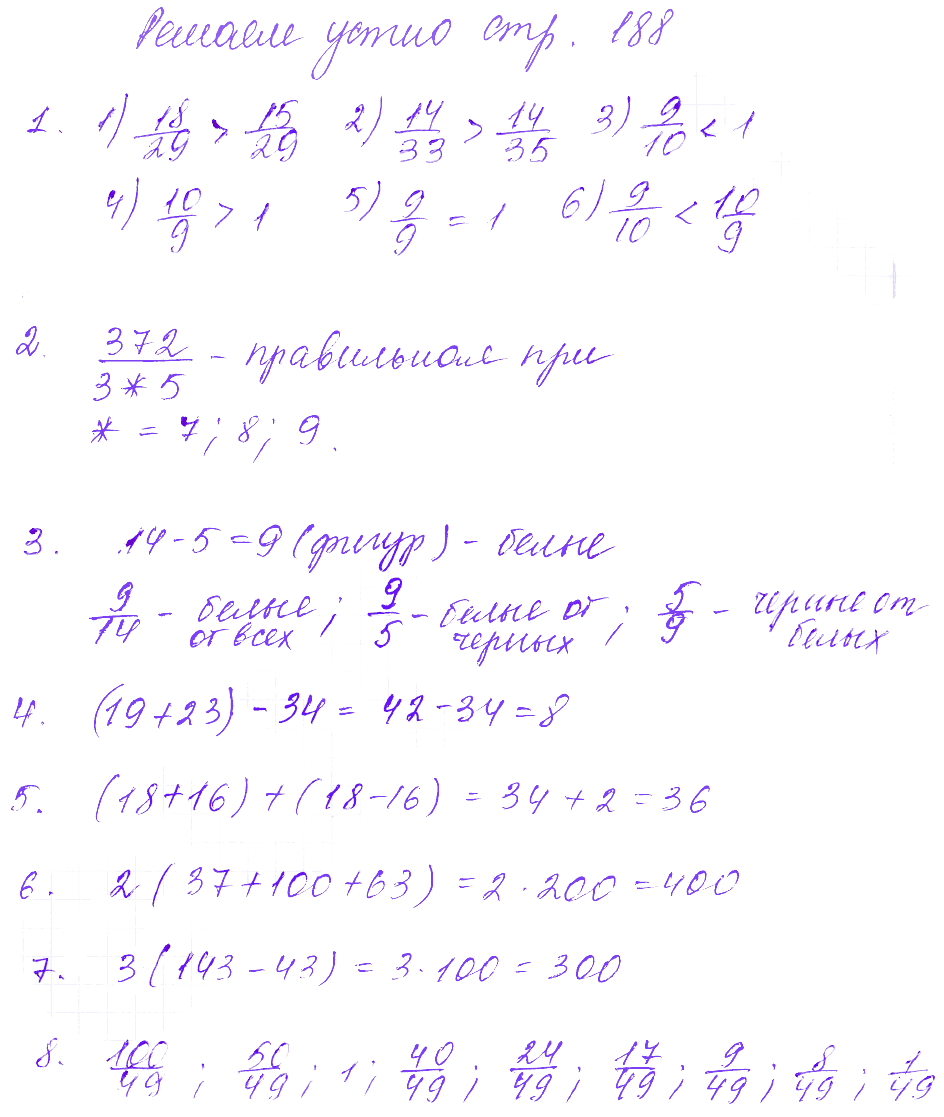 Решаем устно стр. 188
1. 1) 18/29 > 15/29 2) 14/33 > 14/35 3) 9/10 < 1
4) 10/9 > 1 5) 9/9 = 1 6) 9/10 < 10/9
2. 372/3*5 - правильная при
* = 7; 8; 9.
3. 14 - 5 = 9 (фигур) - белые
9/14 - белые от всех; 9/5 - белые от черных; 5/9 - черные от белых
4. (19 + 23) - 34 = 42 - 34 = 8
5. (18 + 16) + (18 - 16) = 34 + 2 = 36
6. 2 (37 + 100 + 63) = 2 · 200 = 400
7. 3 (143 - 43) = 3 · 100 = 300
8. 100/49; 50/49; 1; 40/49; 24/49; 17/49; 9/49; 8/49; 1/49